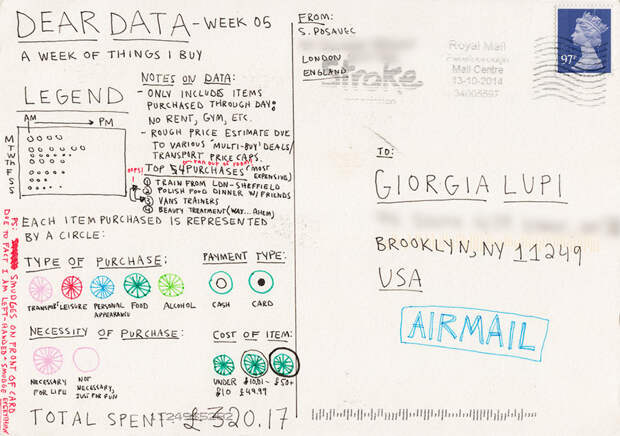 DEAR DATA - WEEK 05
A WEEK OF THINGS I BUY
LEGEND
AM → PM
M
T
W
TH
F
S
S
NOTES ON DATA:
- ONLY INCLUDE ITEMS
PURCHASED THROUGH DAY:
NO RENT, GYM, ETC.
- ROUGH PRICE ESTIMATE DUE
TO VARIOUS 'MULTI-BUY' DEALS/
TRANSPORT PRICE CAPS.
OOPS!
RAN OUT OF ROOM!
TOP 4 PURCHASES (MOST
EXPENSIVE)
① TRAIN FROM LDN-SHEFFIELD
② POLISH FOOD DINNER W/ FRIENDS
③ VANS TRAINERS
④ BEAUTY TREATMENT (WAX...AHEM)
EACH ITEM PURCHASED IS REPRESENTED
BY A CIRCLE:
TYPE OF PURCHASE:
TRANSPORT LEISURE PERSONAL FOOD ALCOHOL
APPEARANCE
PAYMENT TYPE:
CASH CARD
NECESSITY OF PURCHASE:
NECESSARY
FOR LIFE
NOT
NECESSARY,
JUST FOR FUN
COST OF ITEM:
UNDER
£10
£10.01-
£49.99
£50+
TOTAL SPENT £320.17
PS: SMUDGES ON FRONT OF CARD
DUE TO FACT I AM LEFT-HANDED SMUDGE
FROM:
S. POSAVEC
LONDON
ENGLAND
Stroke
Royal Mail
Mail Centre
13-10-2014
34005597
97P
TO:
GIORGIA LUPI
BROOKLYN, NY 11249
USA
AIRMAIL